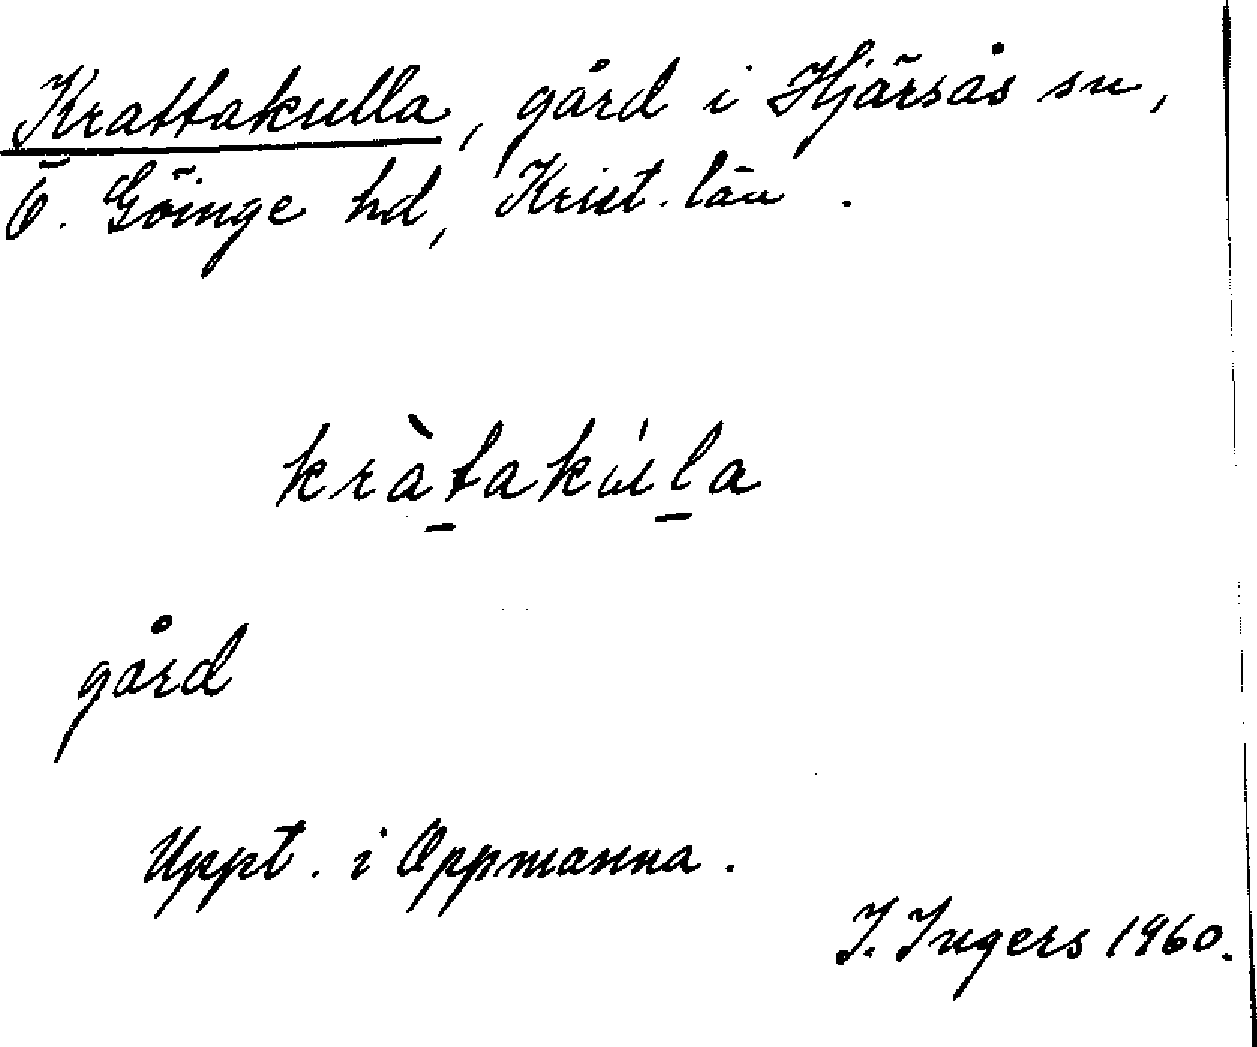 Krattakulla, gård i Hjärsås sn,
Ö. Göinge hd, Krist. län.
kràt̠akúl̠a
gård
Uppt. i Oppmanna.
I. Ingers 1960.